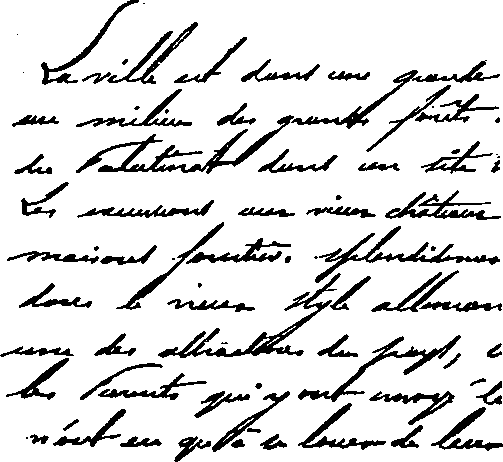 La ville est dans une grande
au milieu des grands forêts
du Palatinat dans un site
Les excursions aux vieux châteaux
maisons forestières. splendidement
dans le vieux style allemand
une des attractions du pays,
les Parents qui y ont envoyé
n'ont eu qu'à se louer de leur